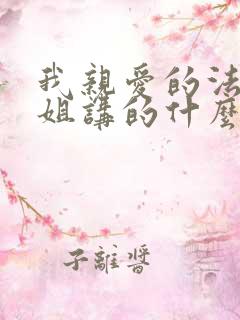 我親愛的法
姐講的什麼
子離醬